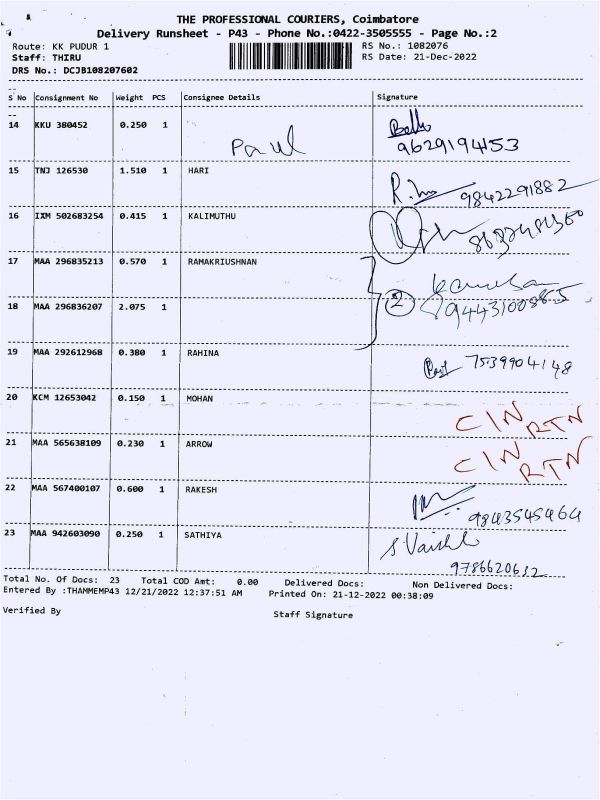 THE PROFESSIONAL COURIERS, Coimbatore
Delivery Runsheet - P43 - Phone No.:0422-3505555 - Page No.:2
Route: KK PUDUR 1 RS No.: 1082076
Staff: THIRU RS Date: 21-Dec-2022
DRS No.: DCJB108207602
S No Consignment No Weight PCS Consignee Details Signature
14 KKU 380452 0.250 1 Paul
9629194153
15 TNJ 126530 1.510 1 HARI
9842291882
16 IXM 502683254 0.415 1 KALIMUTHU
17 MAA 296835213 0.570 1 RAMAKRIUSHNAN
2
18 MAA 296836207 2.075 1
19 MAA 292612968 0.380 1 RAHINA 7539904148
20 KCM 12653042 0.150 1 MOHAN
CIN RTN
21 MAA 565638109 0.230 1 ARROW
CIN RTN
22 MAA 567400107 0.600 1 RAKESH
9843545464
23 MAA 942603090 0.250 1 SATHIYA
9786620632
Total No. Of Docs: 23 Total COD Amt: 0.00 Delivered Docs: Non Delivered Docs:
Entered By :THAMMEMP43 12/21/2022 12:37:51 AM Printed On: 21-12-2022 00:38:09
Verified By Staff Signature